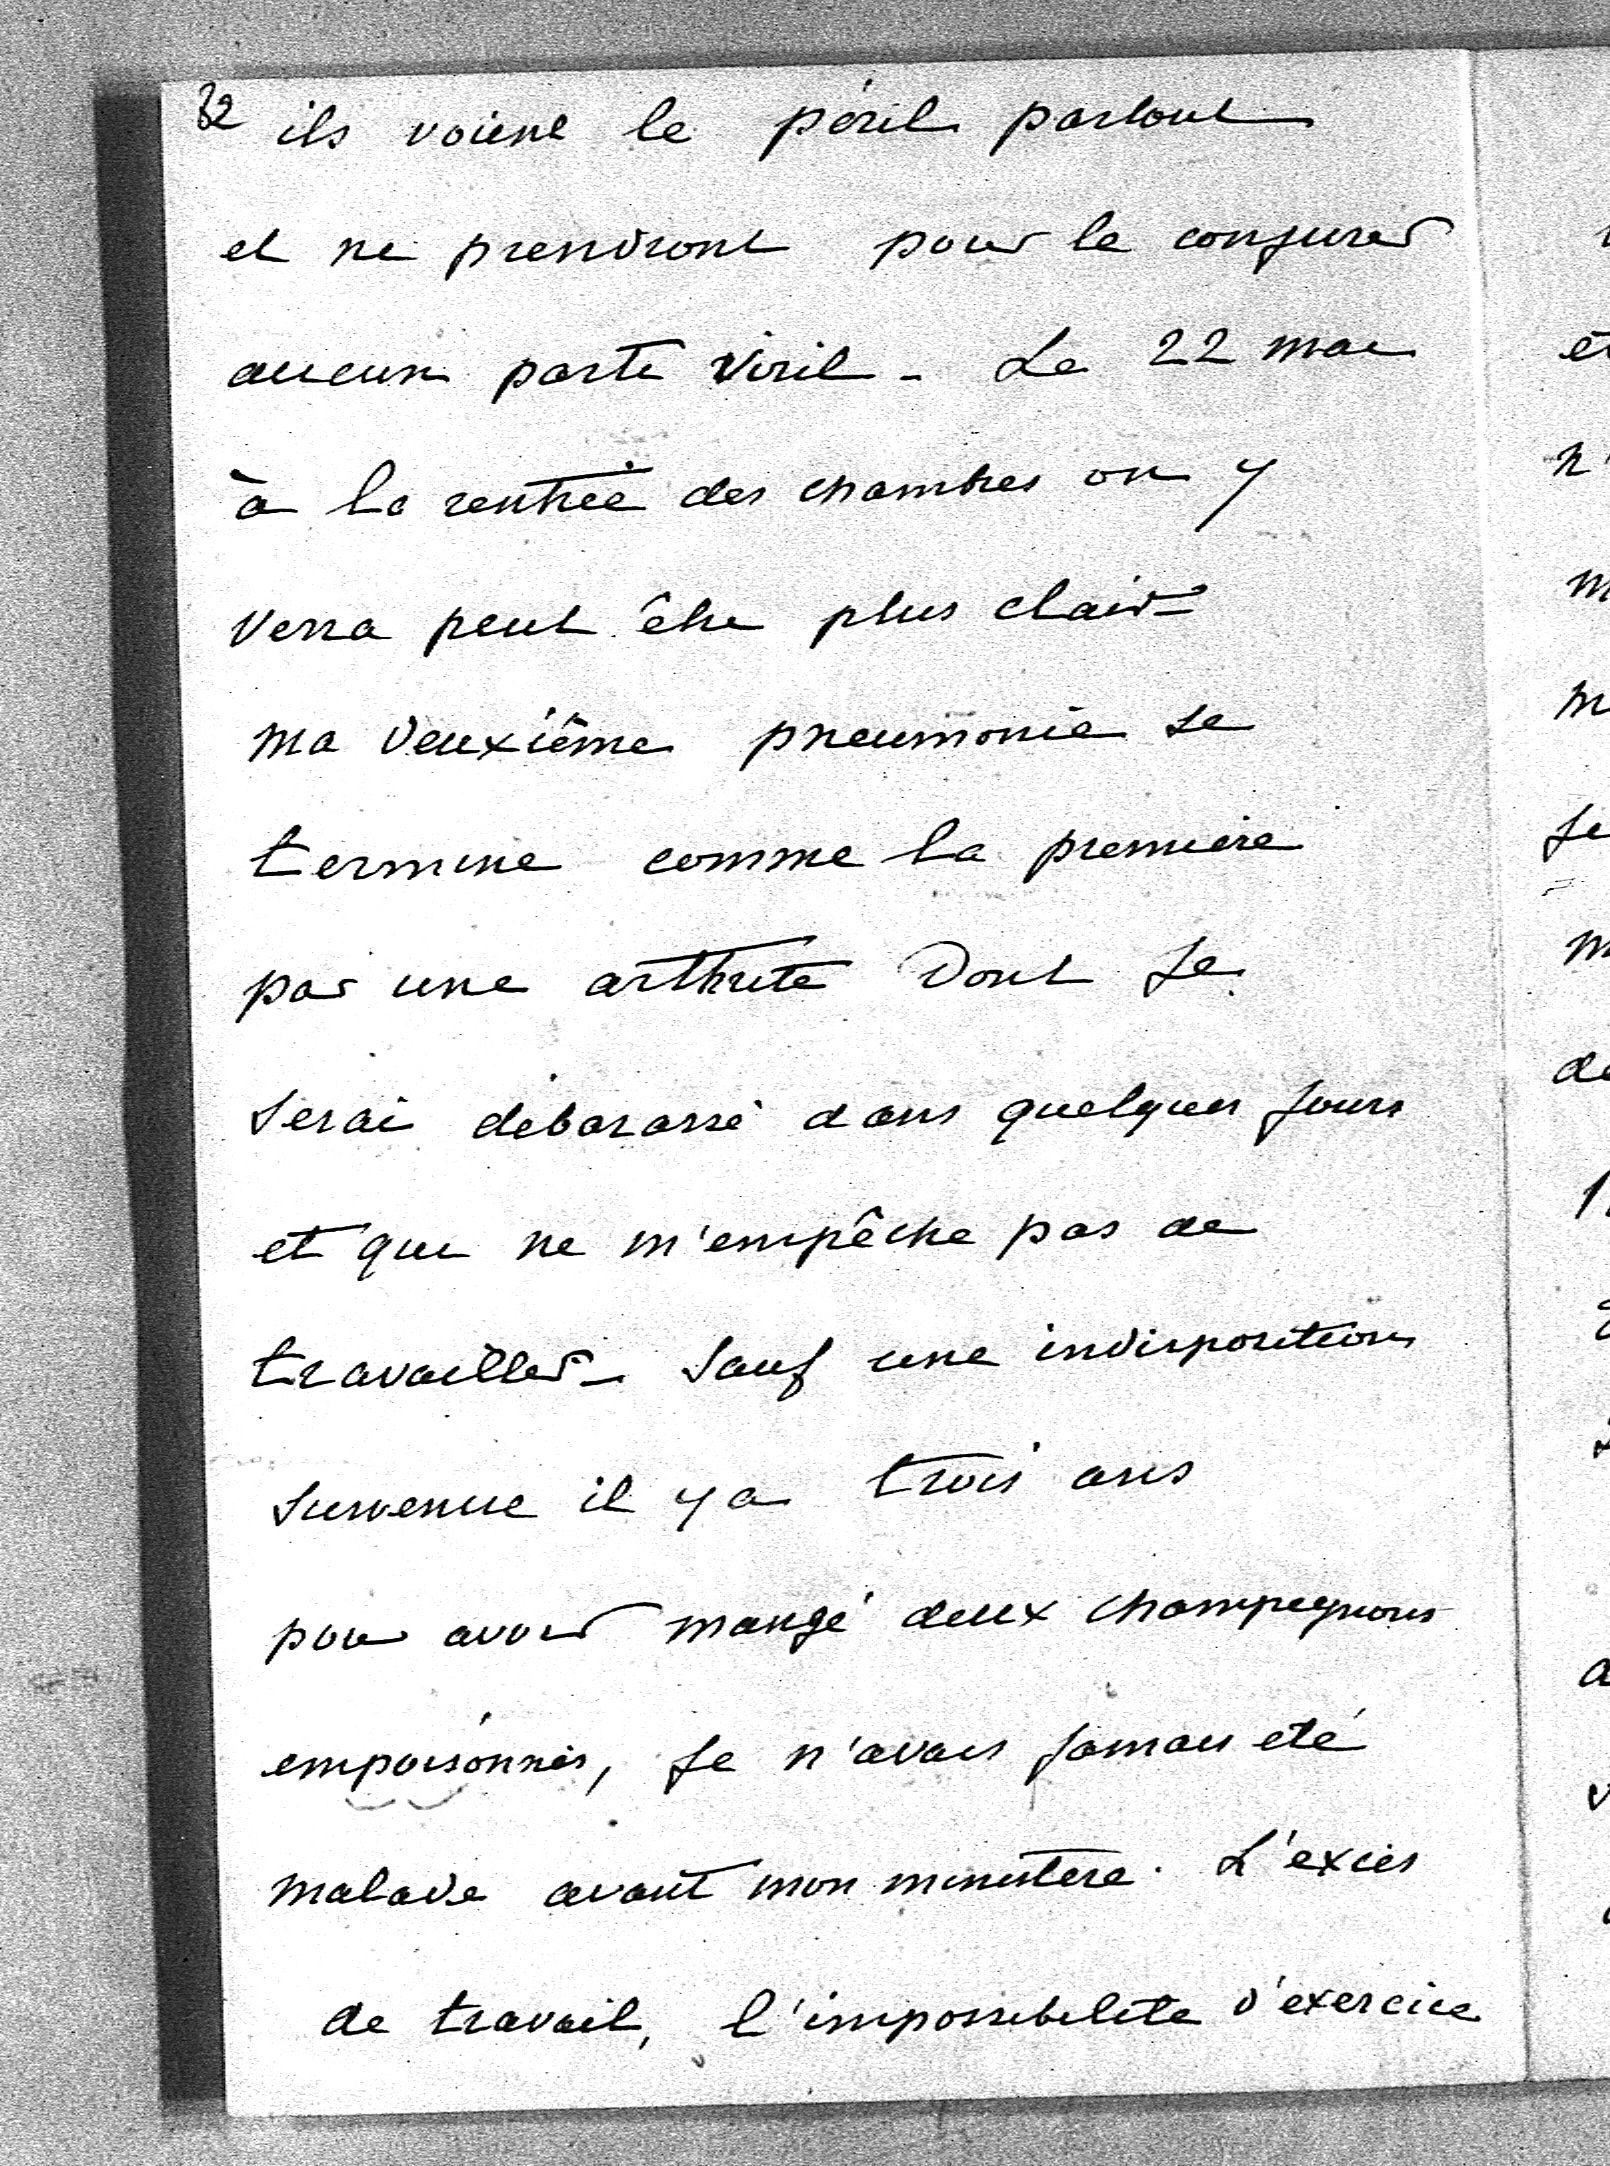 32
ils voient le péril partout
et ne prendront pour le conjurer
aucun parti viril - Le 22 mai
à la rentrée des chambres on y
verra peut être plus clair =
ma deuxième pneumonie se
termine comme la premiere
par une arthrite dont je
serai débarassé dans quelques jours
et qui ne m'empêche pas de
travailler - Sauf une indisposition
survenue il y a trois ans
pour avoir mangé deux champignons
empoisonnés, je n'avais jamais eté
malade avant mon ministere. L'excès
de travail, l'impossibilite d'exercice